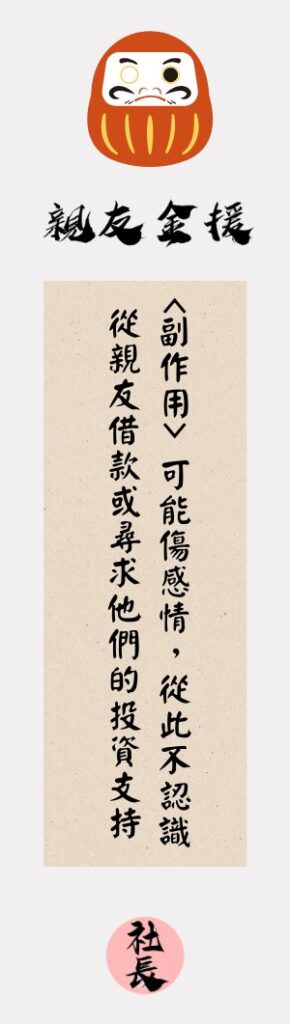 親友金援
<副作用> 可能傷感情，從此不認識
從親友借款或尋求他們的投資支持
社長